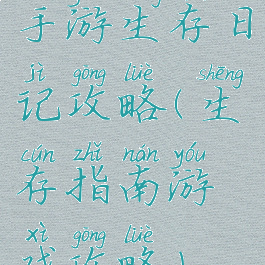 手游生存日
jì gōng lüè shēng
记攻略(生
cún zhǐ nán yóu
存指南游
xì gōng lüè
戏攻略)